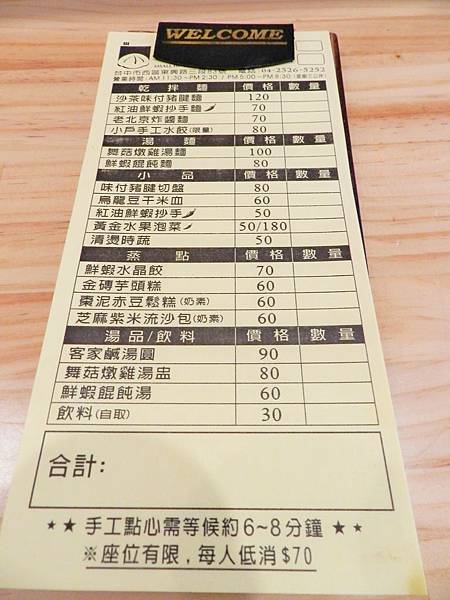 WELCOME
台中市西區東興路三段85號 電話 04-2326-5252
營業時間: AM 11:30~PM 2:30 / PM 5:00~PM 8:30
乾拌麵 價格 數量
沙茶味付豬腱麵 120
紅油鮮蝦抄手麵 70
老北京炸醬麵 70
小戶手工水餃(限量) 80
湯麵 價格 數量
舞菇燉雞湯麵 100
鮮蝦餛飩麵 80
小品 價格 數量
味付豬腱切盤 80
烏龍豆干米血 60
紅油鮮蝦抄手 50
黃金水果泡菜 50/180
清燙時蔬 50
蒸點 價格 數量
鮮蝦水晶餃 70
金磚芋頭糕 60
棗泥赤豆鬆糕(奶素) 60
芝麻紫米流沙包(奶素) 60
湯品/飲料 價格 數量
客家鹹湯圓 90
舞菇燉雞湯盅 80
鮮蝦餛飩湯 60
飲料(自取) 30
合計:
★★手工點心需等候約6~8分鐘★★
※座位有限,每人低消$70